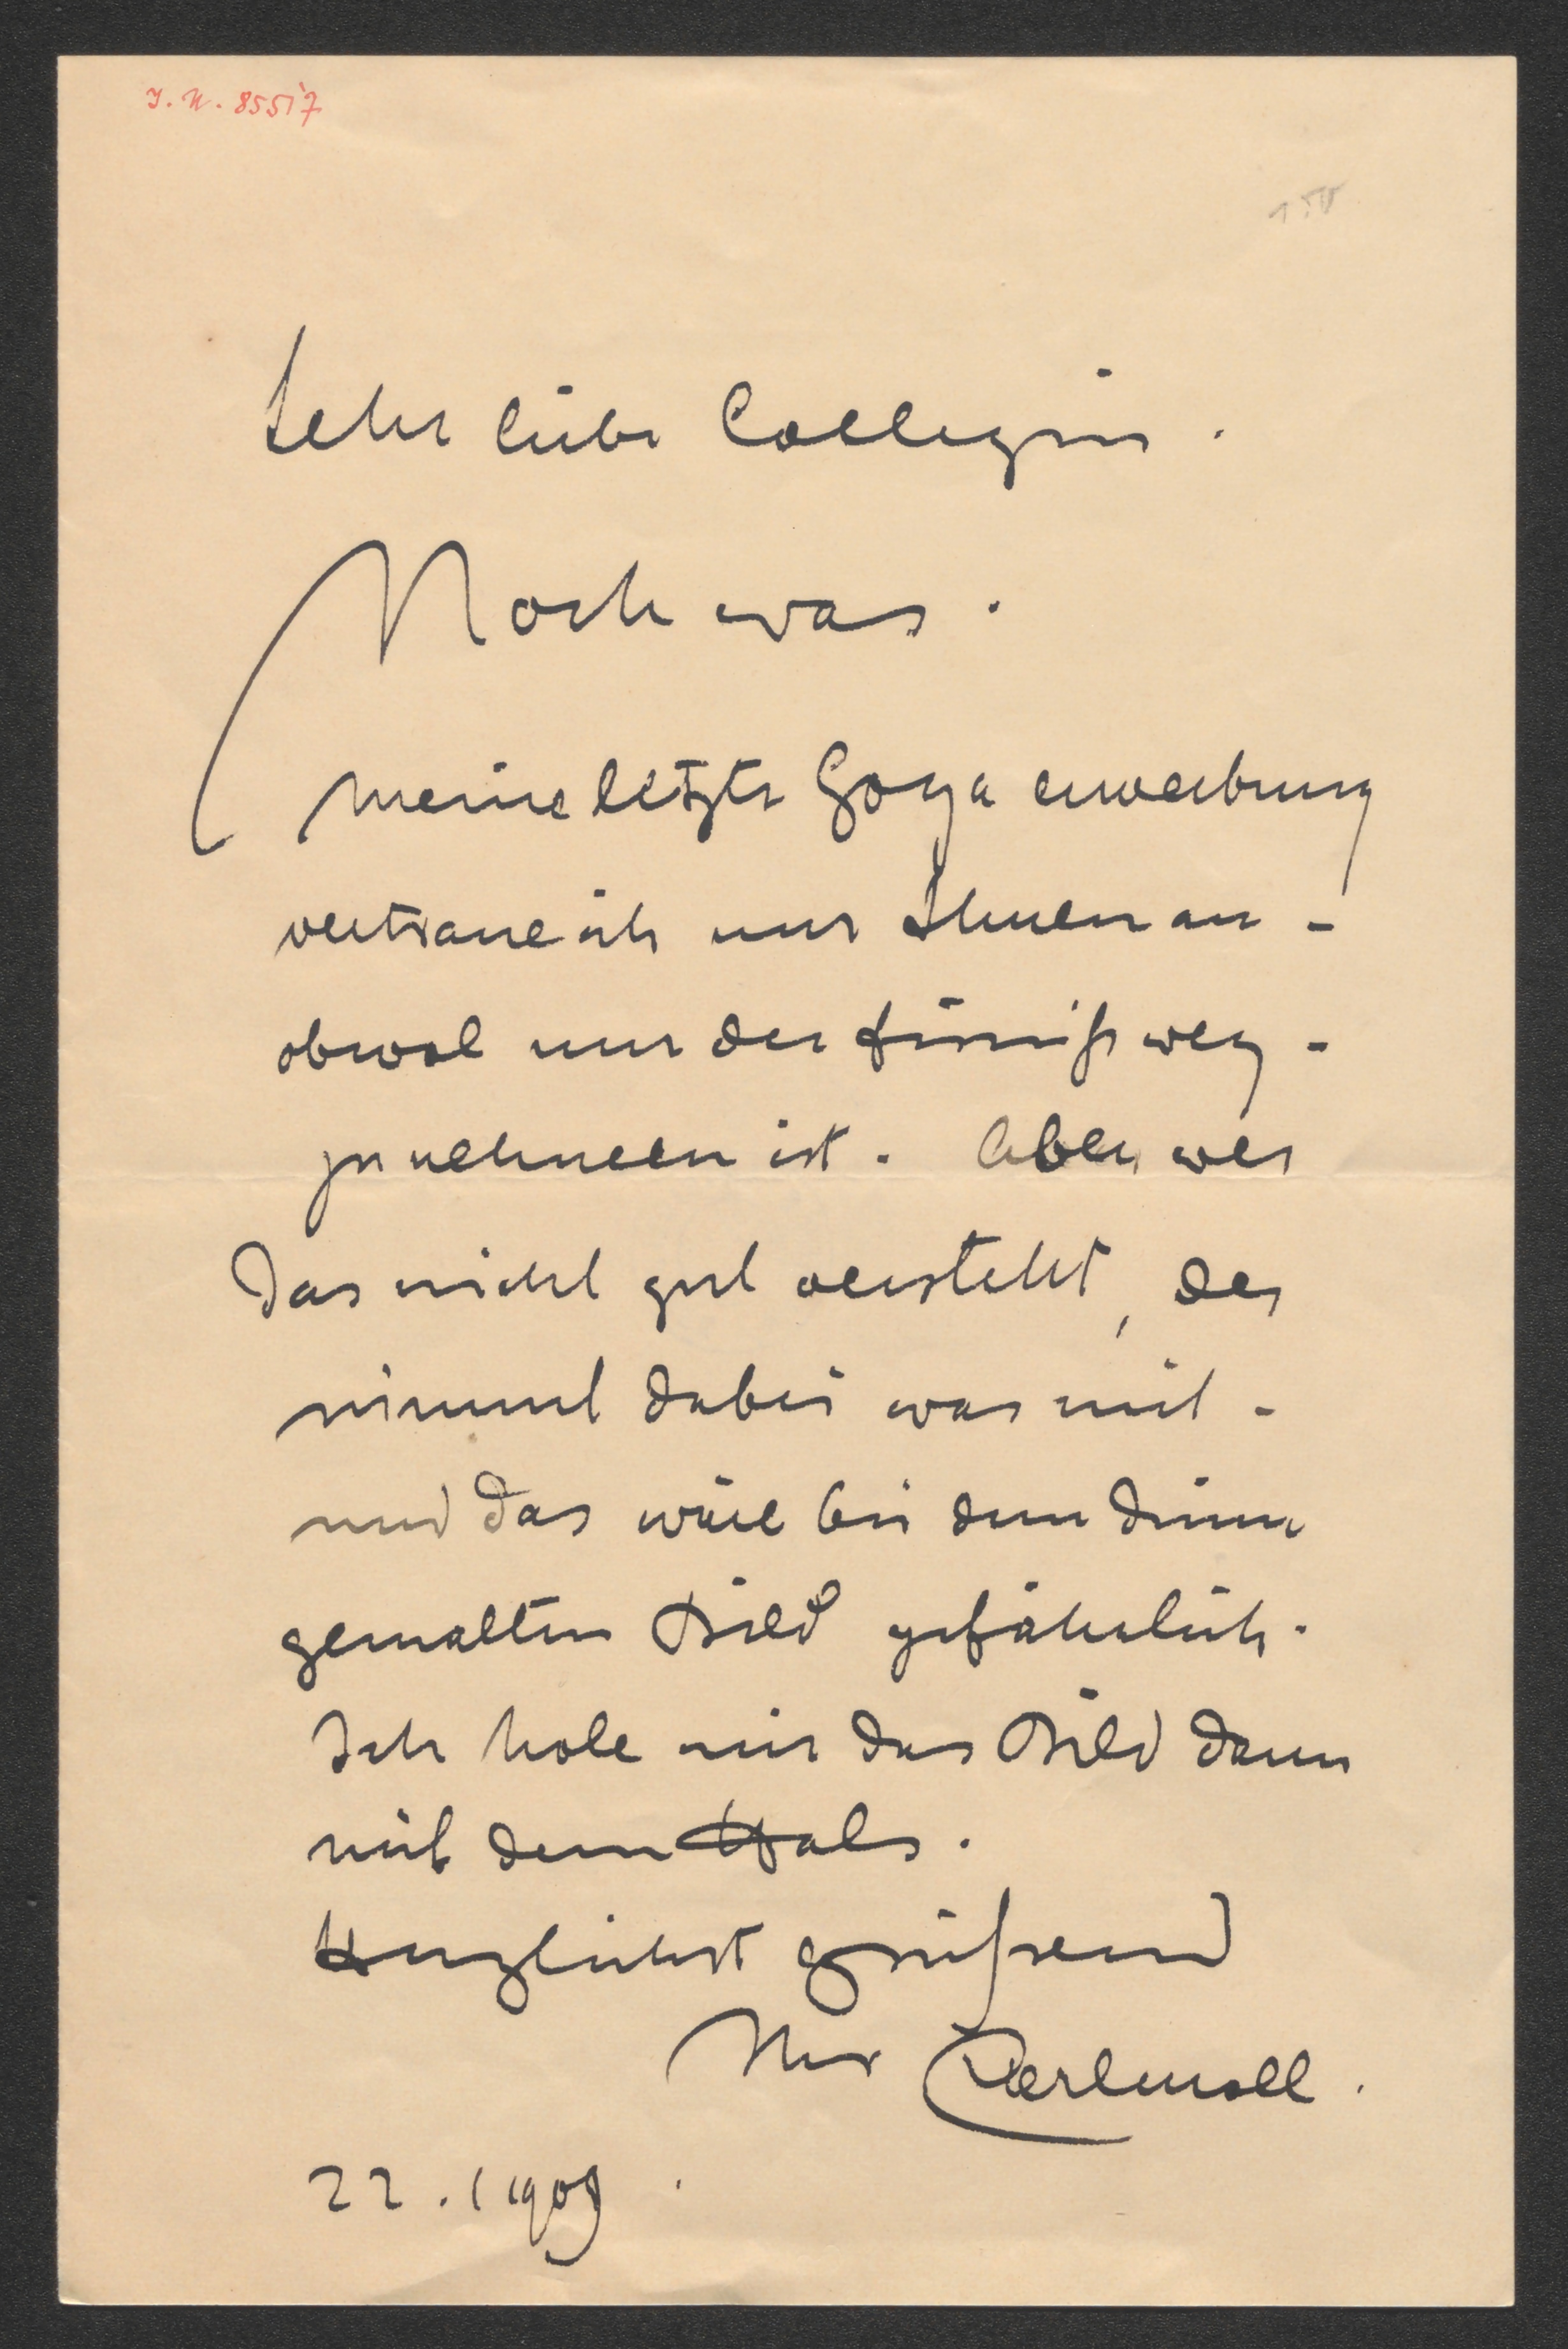 J. N. 85517
Sehr liebe Collegin.
Noch was.
Meine letzte Goya erwerbung
vertraue ich nur Ihnen an -
obwol nur der Firniß weg-
zunehmen ist. Aber wer
das nicht gut versteht, der
nimmt dabei was mit -
und das wäre bei dem dünn
gemalten Bild gefährlich.
Ich hole mir das Bild dann
mit dem Hals.
Herzlichst grüßend
Ihr Carl Moll.
22. 1 1909.